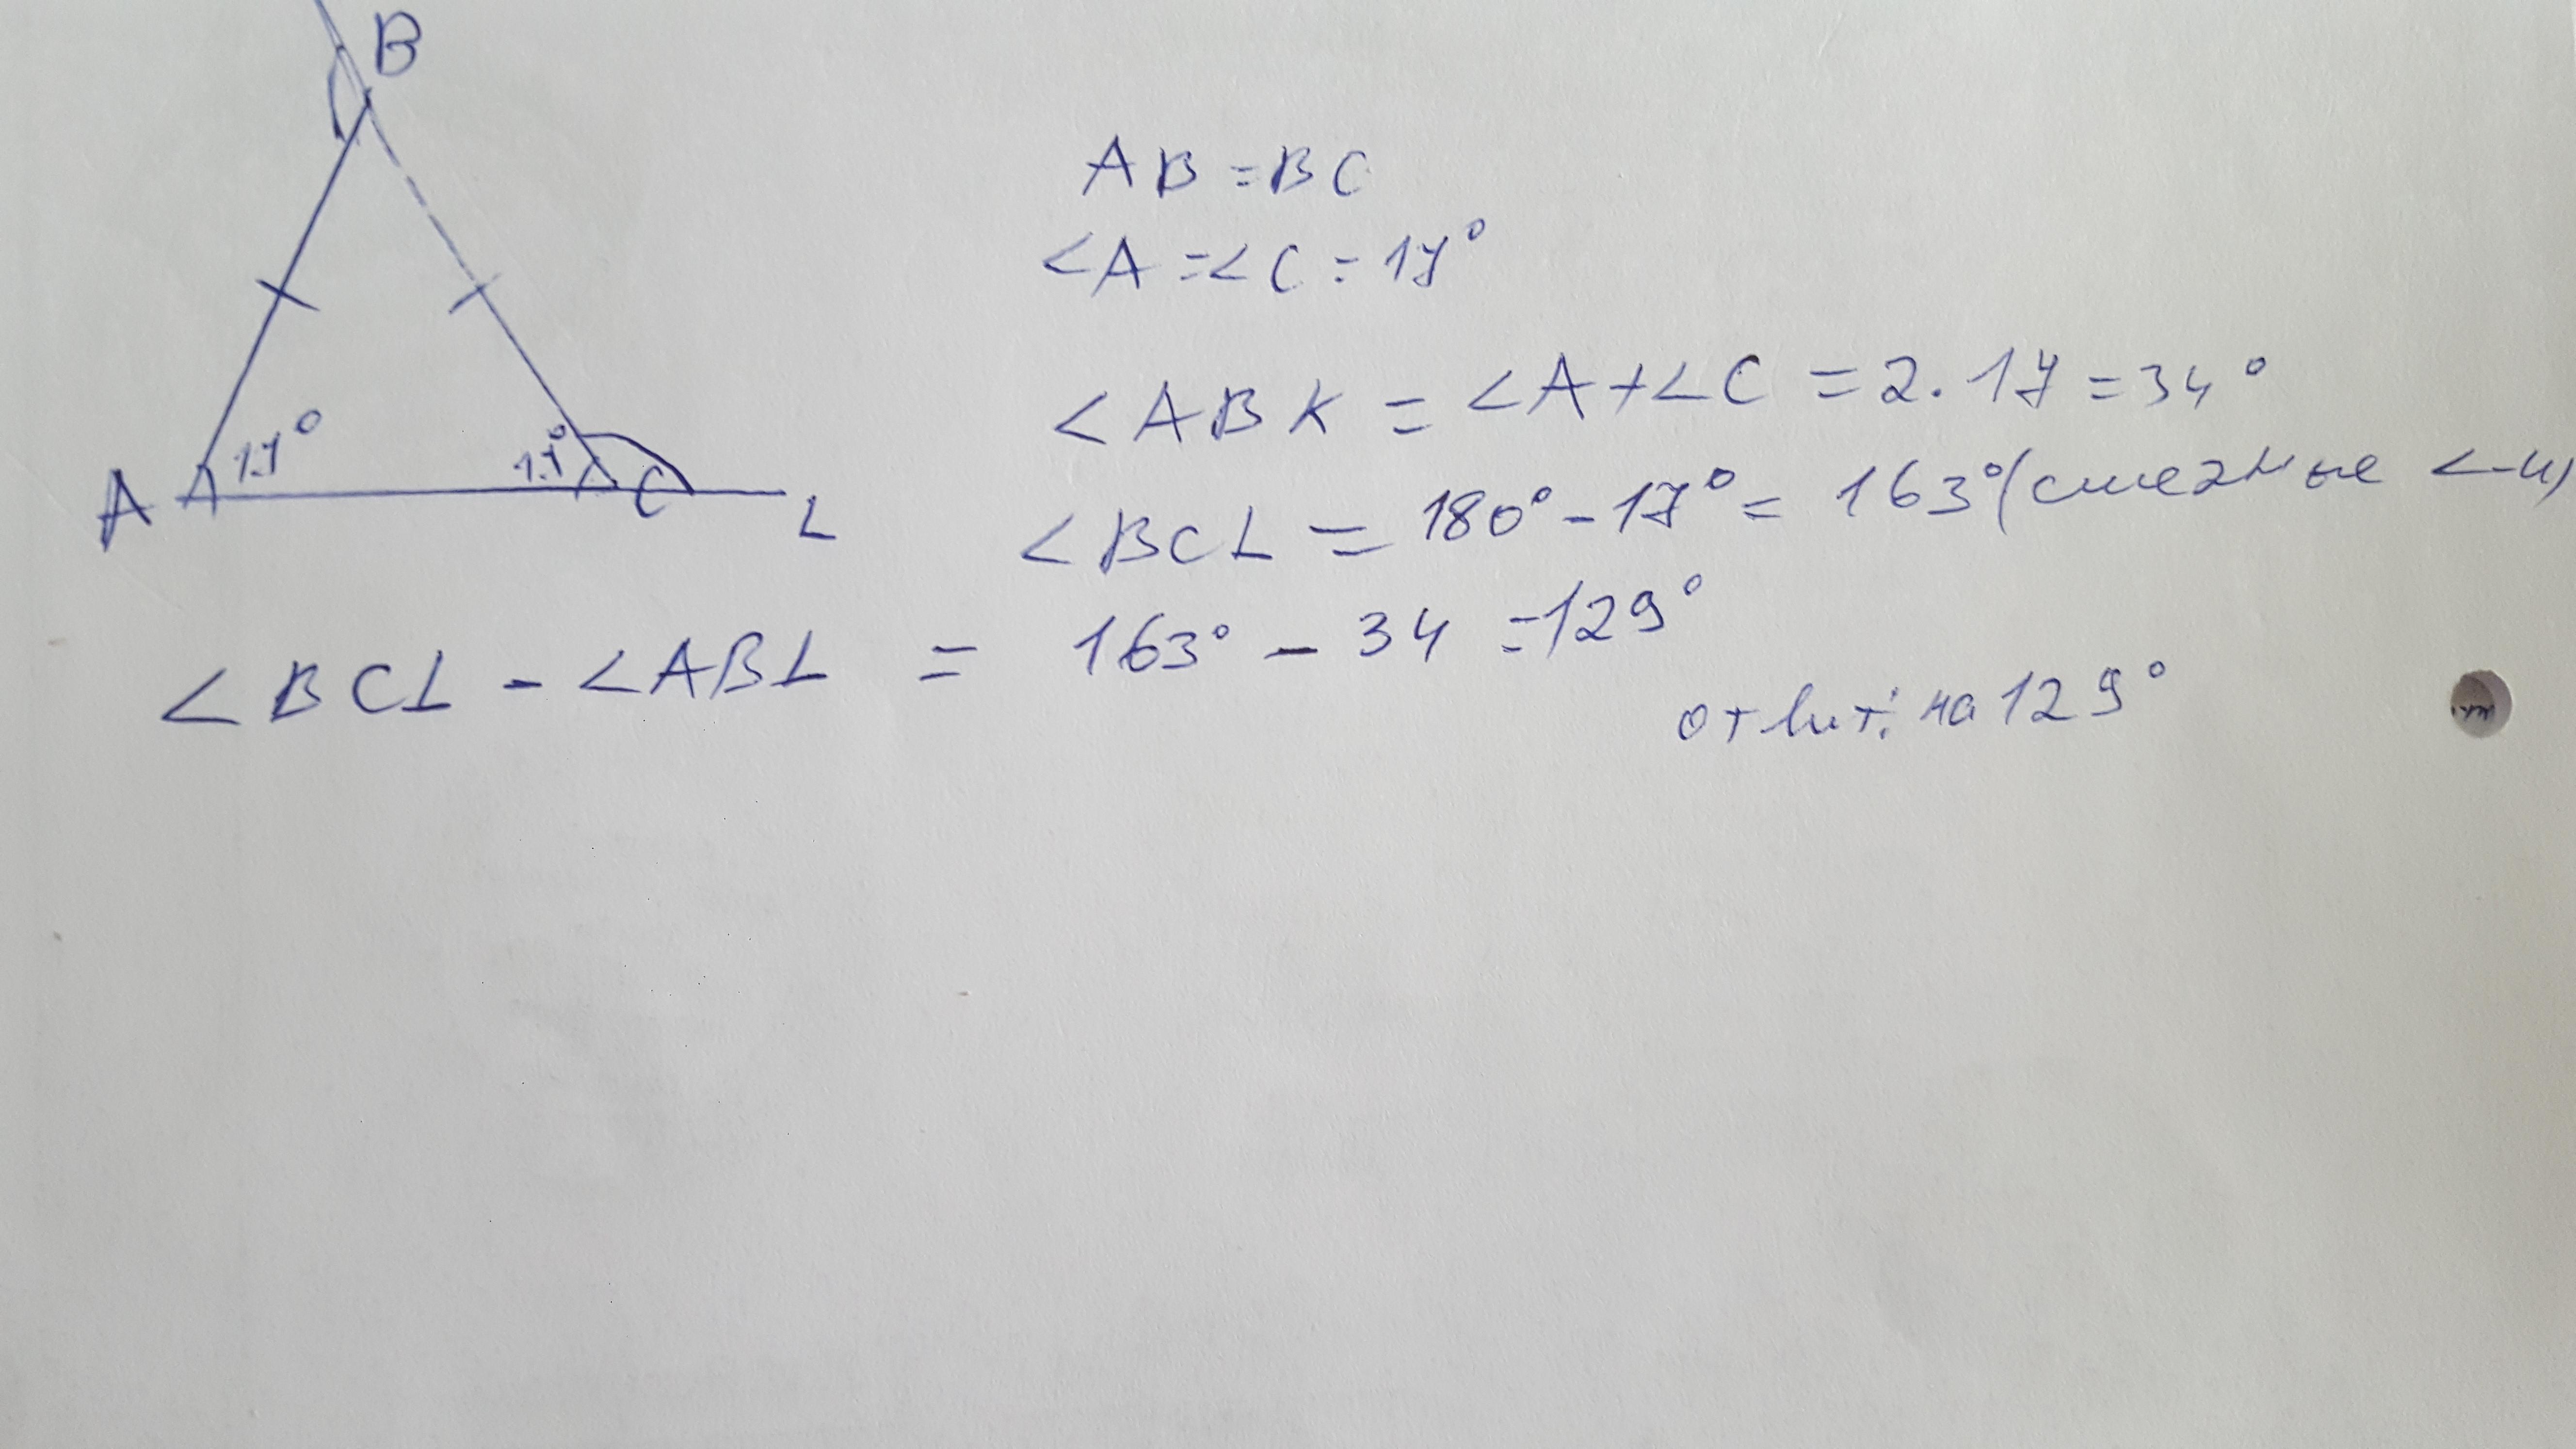 B
A 17° 17° C L
AB = BC
∠A = ∠C = 17°
∠ABK = ∠A + ∠C = 2 · 17 = 34°
∠BCL = 180° - 17° = 163° (смежные ∠-и)
∠BCL - ∠ABL = 163° - 34 = 129°
ответ: на 129°